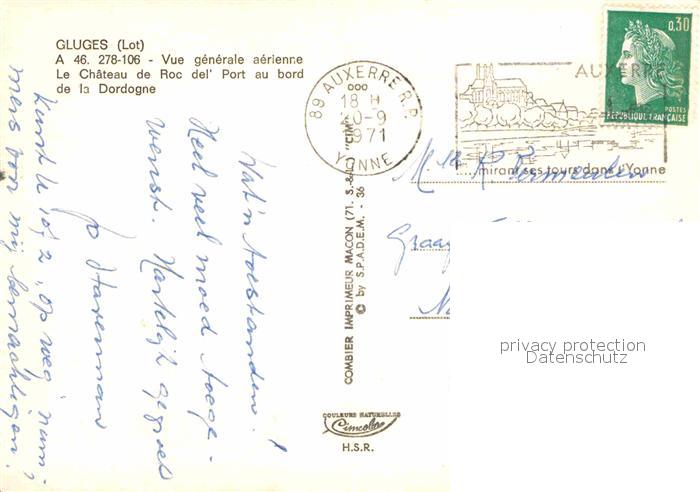 GLUGES (Lot)
A 46. 278-106 - Vue générale aérienne
Le Château de Roc del' Port au bord
de la Dordogne
89 AUXERRE R.P.
18 H
20-9
1971
YONNE
AUXERRE
...mirant ses tours dans l'Yonne
0,30
POSTES
REPUBLIQUE FRANÇAISE
Wat 'n toestanden!
Heel veel moed toege-
wenst. Hartelijk gegroet
Jo
Kunt U, op weg,
mers voor mij bemachtigen?
COMBIER IMPRIMEUR MACON (71. S.-&-L.) "CIM"
© by S.P.A.D.E.M. 36
R. Vermeulen
COULEURS NATURELLES
Cimcolor
H.S.R.
privacy protection
Datenschutz